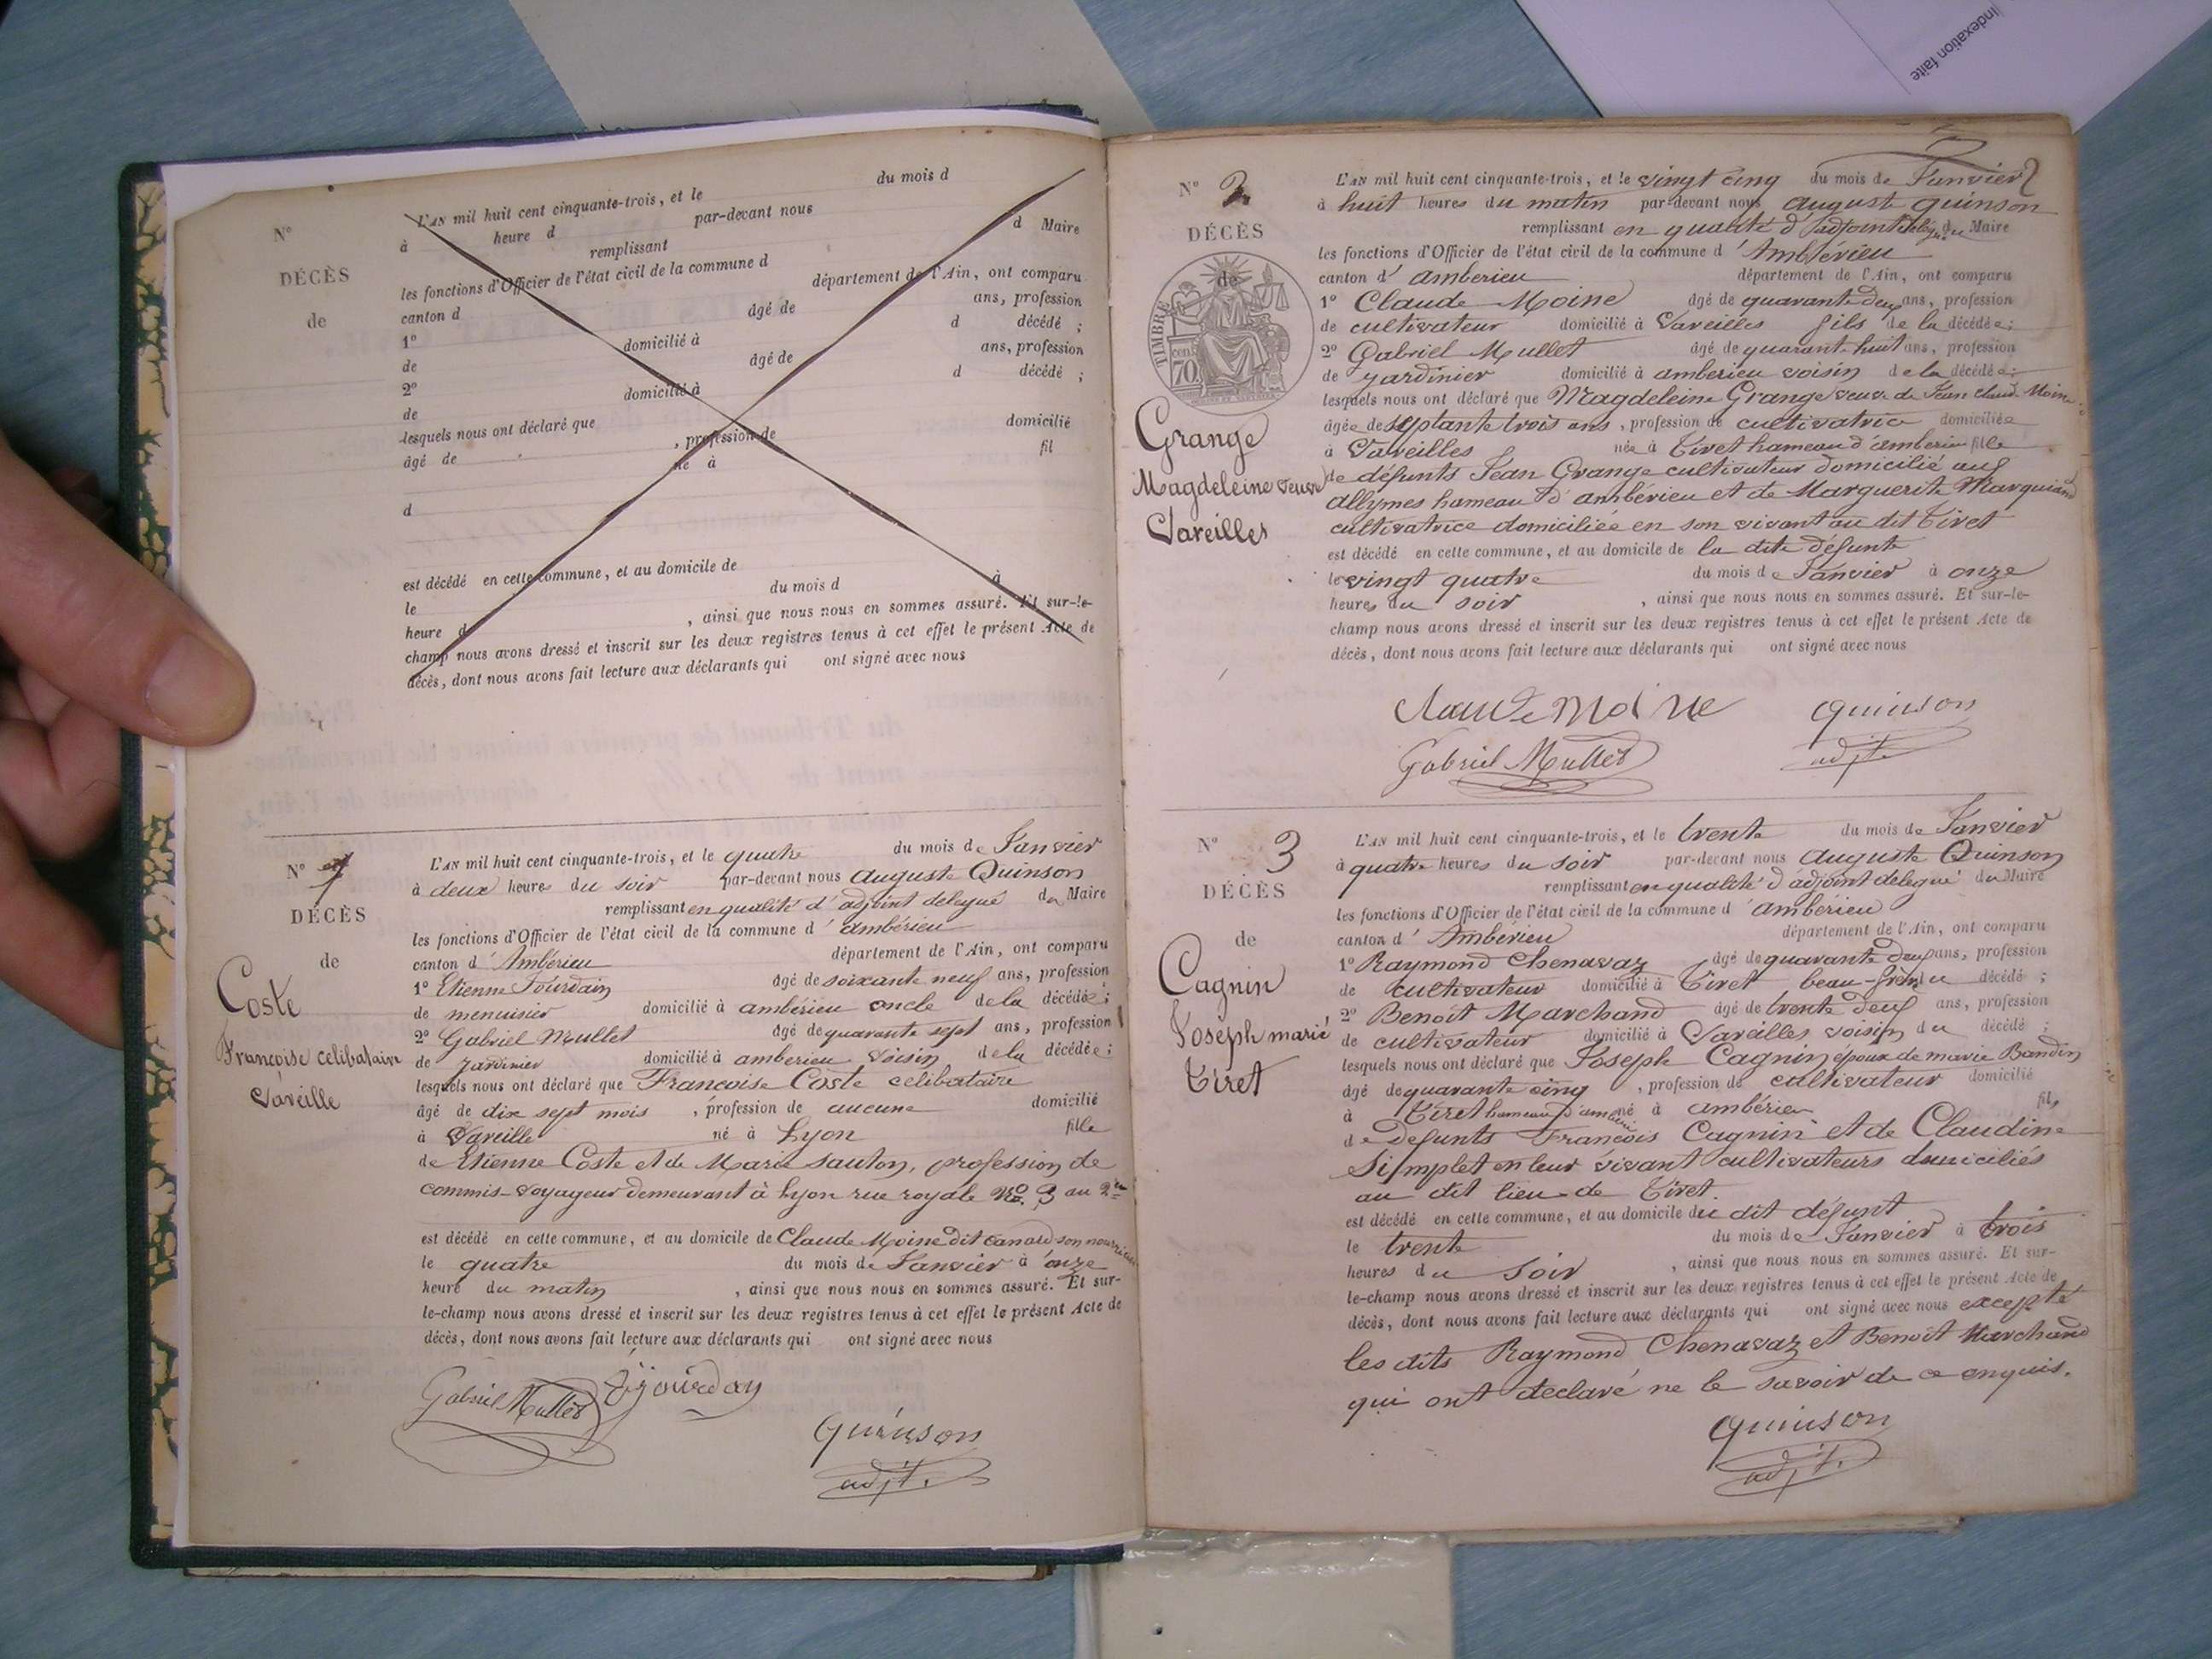 Indexation faite
N°
DÉCÈS
de
L'AN mil huit cent cinquante-trois, et le du mois d
à heure d par-devant nous
remplissant d Maire
les fonctions d'Officier de l'état civil de la commune d
canton d département de l'Ain, ont comparu
1° âgé de ans, profession
de domicilié à d décédé ;
2° âgé de ans, profession
de domicilié à d décédé ;
lesquels nous ont déclaré que
âgé de , profession de domicilié
né à fil
d
est décédé en cette commune, et au domicile de
le du mois d à
heure d , ainsi que nous nous en sommes assuré. Et sur-le-
champ nous avons dressé et inscrit sur les deux registres tenus à cet effet le présent Acte de
décès, dont nous avons fait lecture aux déclarants qui ont signé avec nous
N° 1
DÉCÈS
de
Coste
Françoise celibataire
Vareille
L'AN mil huit cent cinquante-trois, et le quatre du mois de Janvier
à deux heures du soir par-devant nous auguste Quinson
remplissant en qualité d'adjoint delegué du Maire
les fonctions d'Officier de l'état civil de la commune d'ambérieu
canton d'Ambérieu département de l'Ain, ont comparu
1° Etienne Jourdain âgé de soixante neuf ans, profession
de menuisier domicilié à ambérieu oncle de la décédée ;
2° Gabriel Mullet âgé de quarante sept ans, profession
de Jardinier domicilié à amberieu voisin de la décédée ;
lesquels nous ont déclaré que Françoise Coste celibataire
âgé de dix sept mois , profession de aucune domicilié
à Vareille né à Lyon fille
de Etienne Coste et de Marie Sauton, profession de
commis-voyageur demeurant à Lyon rue royale No. 3 au 2em
est décédé en cette commune, et au domicile de Claude Moine dit Canard son nourricier
le quatre du mois de Janvier à onze
heure du matin , ainsi que nous nous en sommes assuré. Et sur-
le-champ nous avons dressé et inscrit sur les deux registres tenus à cet effet le présent Acte de
décès, dont nous avons fait lecture aux déclarants qui ont signé avec nous
Gabriel Mullet Ejourdan
quinson
adjt.
2
N° 2
DÉCÈS
de
TIMBRE
70 cent
Grange
Magdeleine veuve
Vareilles
L'AN mil huit cent cinquante-trois, et le vingt cinq du mois de Janvier
à huit heures du matin par-devant nous auguste quinson
remplissant en qualité d'adjoint délégué du Maire
les fonctions d'Officier de l'état civil de la commune d'Ambérieu
canton d'amberieu département de l'Ain, ont comparu
1° Claude Moine âgé de quarante deux ans, profession
de cultivateur domicilié à Vareilles fils de la décédée ;
2° Gabriel Mullet âgé de quarante huit ans, profession
de Jardinier domicilié à amberieu voisin de la décédée ;
lesquels nous ont déclaré que Magdeleine Grange veuve de Jean Claude Moine
âgée de septante trois ans , profession de cultivatrice domiciliée
à Vareilles née à Tiret hameau d'amberieu fille
de défunts Jean Grange cultivateur domicilié aux
allymes hameau d'ambérieu et de Marguerite Marquiand
cultivatrice domiciliée en son vivant au dit Tiret
est décédé en cette commune, et au domicile de la dite défunte
le vingt quatre du mois de Janvier à onze
heures du soir , ainsi que nous nous en sommes assuré. Et sur-le-
champ nous avons dressé et inscrit sur les deux registres tenus à cet effet le présent Acte de
décès, dont nous avons fait lecture aux déclarants qui ont signé avec nous
Claude Moine quinson
Gabriel Mullet adjt.
N° 3
DÉCÈS
de
Cagnin
Joseph marié
Tiret
L'AN mil huit cent cinquante-trois, et le trente du mois de Janvier
à quatre heures du soir par-devant nous auguste Quinson
remplissant en qualité d'adjoint delegué du Maire
les fonctions d'Officier de l'état civil de la commune d'amberieu
canton d'Ambérieu département de l'Ain, ont comparu
1° Raymond Chenavaz âgé de quarante deux ans, profession
de cultivateur domicilié à Tiret beau-frère du décédé ;
2° Benoit Marchand âgé de trente deux ans, profession
de cultivateur domicilié à Vareilles voisin du décédé ;
lesquels nous ont déclaré que Joseph Cagnin époux de marie Bandin
âgé de quarante cinq , profession de cultivateur domicilié
à Tiret hameau d'ambérieu né à ambérieu fils
de defunts François Cagnin et de Claudine
Simplet en leur vivant cultivateurs domiciliés
au dit lieu de Tiret.
est décédé en cette commune, et au domicile du dit défunt
le trente du mois de Janvier à trois
heures du soir , ainsi que nous nous en sommes assuré. Et sur-
le-champ nous avons dressé et inscrit sur les deux registres tenus à cet effet le présent Acte de
décès, dont nous avons fait lecture aux déclarants qui ont signé avec nous excepté
les dits Raymond Chenavaz et Benoit Marchand
qui ont declaré ne le savoir de ce enquis.
quinson
adjt.